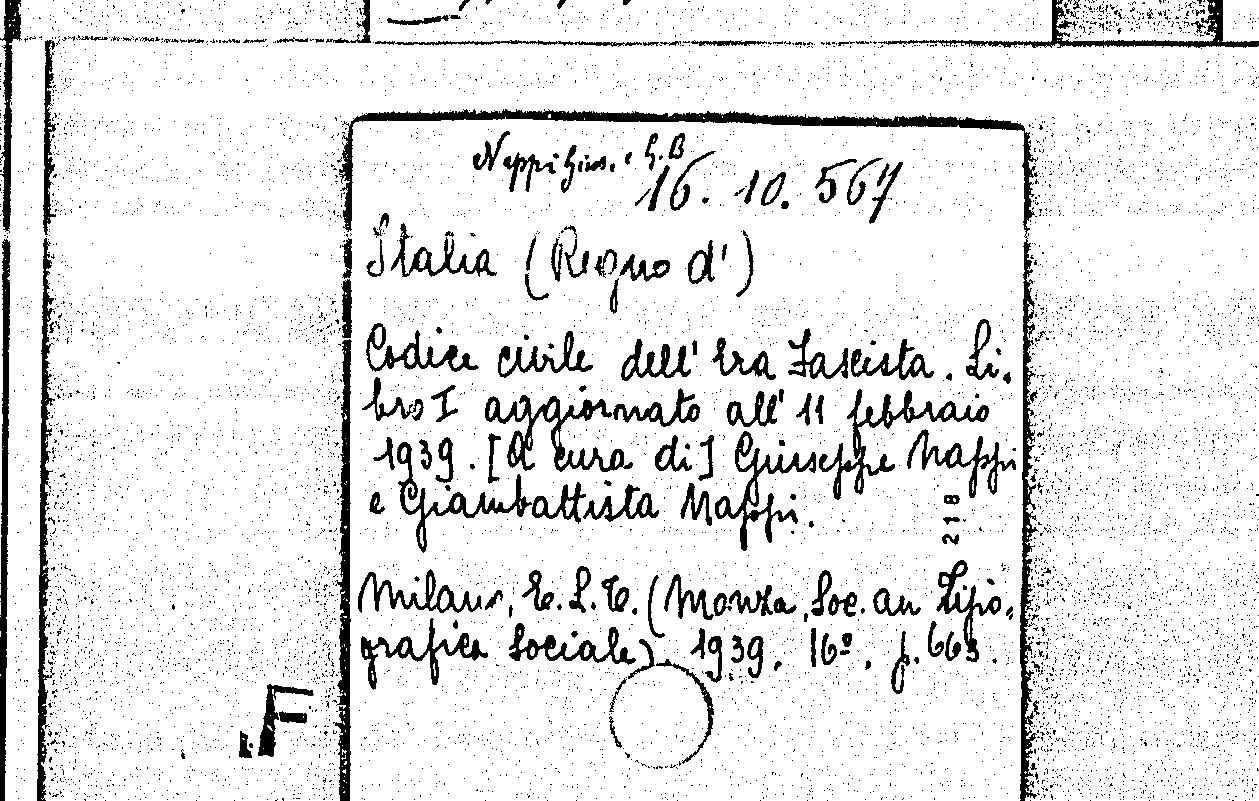 Nappi Gius. e G.B
16. 10. 567
Italia (Regno d')
Codice civile dell' Era Fascista. Li-
bro I aggiornato all' 11 febbraio
1939. [A cura di] Giuseppe Nappi
e Giambattista Nappi.
218
Milano, E.L.T. (Monza, Soc. an Tipo-
grafica Sociale), 1939, 16º, p. 663.
F